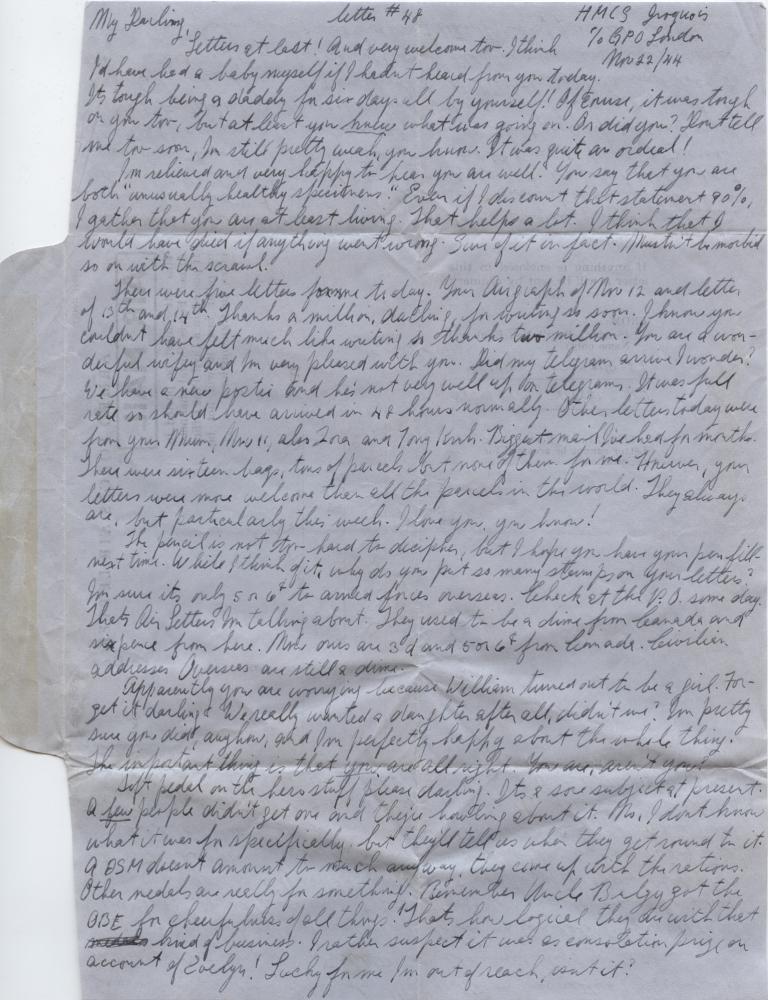 My Darling, letter #48 HMCS Iroquois
c/o GPO London
Nov 22/44
Letters at last! And very welcome too. I think
I'd have had a baby myself if I hadn't heard from you today.
Its tough being a daddy for six days all by yourself!! Of course, it was tough
on you too, but at least you knew what was going on. Or did you? Don't tell
me too soon, I'm still pretty weak, you know. It was quite an ordeal!
I'm relieved and very happy to hear you are well. You say that you are
both "unusually healthy specimens." Even if I discount that statement 90%,
I gather that you are at least living. That helps a lot. I think that I
would have died if anything went wrong. Sure of it in fact. Mustn't be morbid
so on with the scrawl.
There were five letters for me today. Your Airgraph of Nov 12 and letter
of 13th and 14th. Thanks a million, darling, for writing so soon. I know you
couldn't have felt much like writing so thanks two million. You are a won-
derful wifey and I'm very pleased with you. Did my telegram arrive I wonder?
We have a new postie and he's not very well up on telegrams. It was full
rate so should have arrived in 48 hours normally. Other letters today were
from your Mum, Nov 11, also Zora and Tony. Biggest mail I've had for months.
There were sixteen bags, tons of parcels but none of them for me. However, your
letters were more welcome than all the parcels in the world. They always
are, but particularly this week. I love you, you know!
The pencil is not too hard to decipher, but I hope you have your pen fill-
next time. While I think of it, why do you put so many stamps on your letters?
I'm sure its only 5 or 6¢ to armed forces overseas. Check at the P.O. some day.
Thats Air Letters I'm talking about. They used to be a dime from Canada and
sixpence from here. Now ours are 3d and 5 or 6¢ from Canada. Civilian
addresses Overseas are still a dime.
Apparently you are worrying because William turned out to be a girl. For-
get it darling. We really wanted a daughter after all, didn't we? I'm pretty
sure you did, anyhow, and I'm perfectly happy about the whole thing.
The important thing is that you are all right. You are, aren't you?
Soft pedal on the hero stuff please darling. Its a sore subject at present.
A few people didn't get one and they're howling about it. No, I don't know
what it was for specifically, but they'll tell us when they get round to it.
A DSM doesn't amount to much anyway, they come up with the rations.
Other medals are really for something. Remember Uncle got the
OBE for cheerfulness of all things! Thats how logical they are with that
kind of business. I rather suspect it was as consolation prize on
account of Evelyn! Lucky for me I'm out of reach, isn't it?